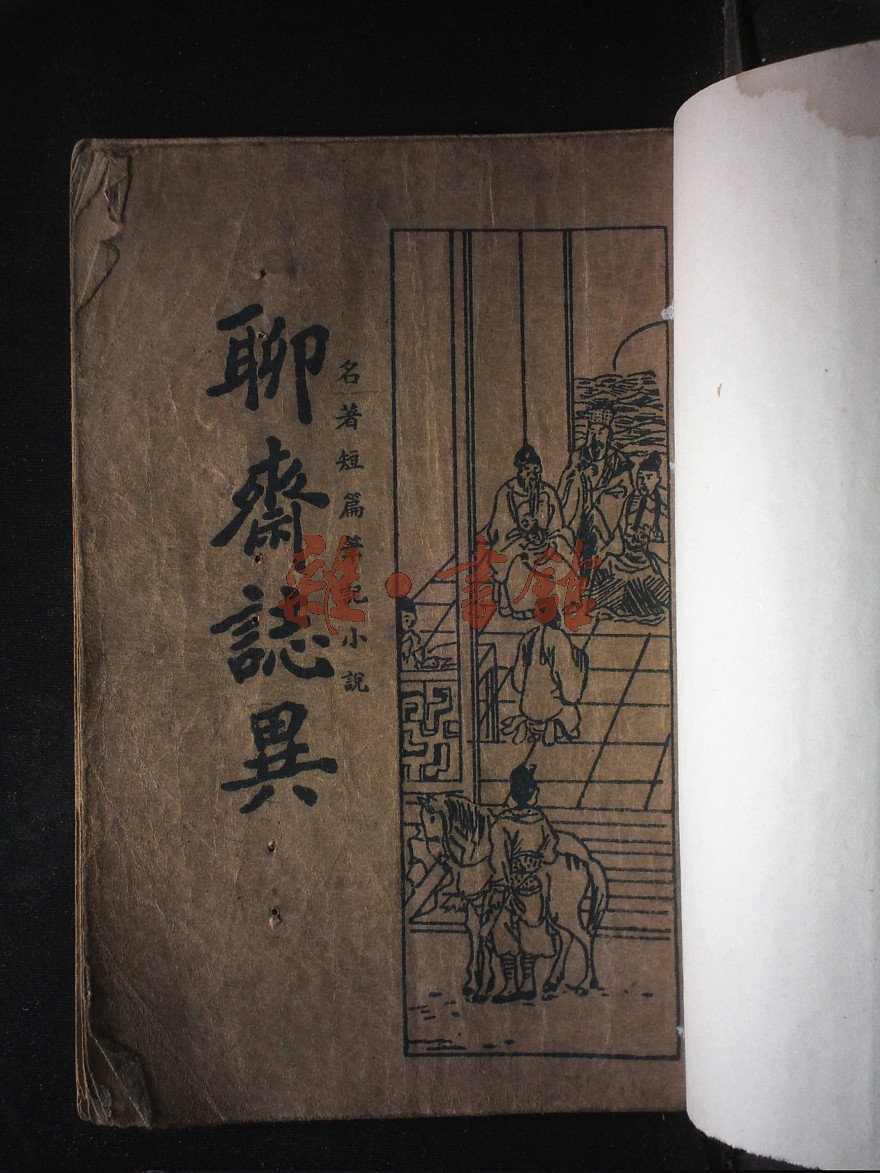 名著短篇筆記小說
聊齋誌異
雜·書館